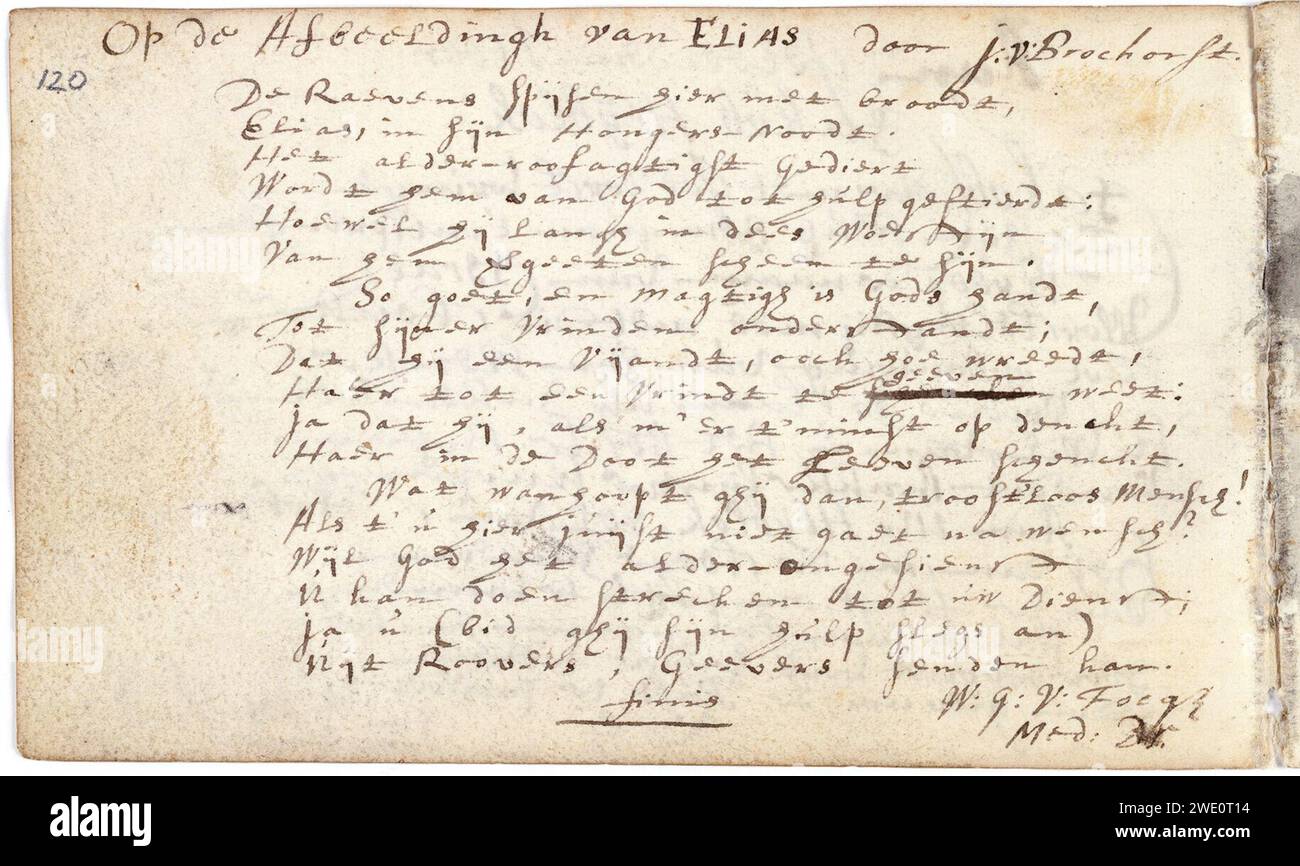 Op de Afbeeldingh van ELIAS door J: V: Brochorst.
120
De Raevens spijsen hier met broodt,
Elias, in sijn Hongers-Noodt.
Het alder-roofagtighst Gediert
Wordt hem van God tot hulp gestierdt:
Hoewel hij langh in dees Woestijn
Van hem vergeeten scheen te sijn.
So goet, en magtigh is Gods handt,
Tot sijner Vrinden onderstandt;
Dat hij een Vijandt, och hoe wreedt,
geeven
Haer tot een Vrindt te weet:
Ja dat hij, als m'er t'minst op denckt,
Haer in de Doot het Leeven schenckt.
Wat wanhoopt ghij dan, troost'loos Mensch!
Als t'u hier juijst niet gaet na wensch?
Wijl God het alder-ongesienst
U kan doen strecken tot uw Dienst;
Ja u (bid ghij sijn hulp slegs an)
Uijt Roovers, Geevers senden kan.
finis
W: G: V: Focqh
Med: Dr.
alamy
alamy
alamy
alamy
alamy
alamy
Image ID: 2WE0T14
www.alamy.com